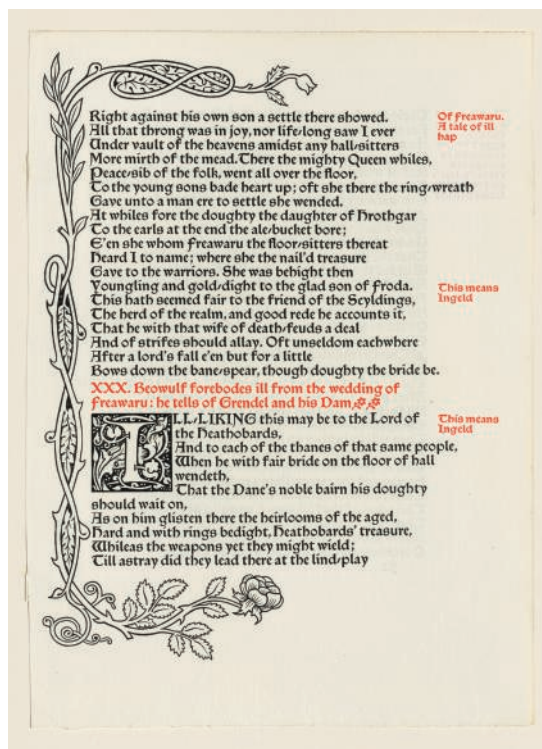 Right against his own son a settle there showed.
All that throng was in joy, nor life-long saw I ever
Under vault of the heavens amidst any hall-sitters
More mirth of the mead. There the mighty Queen whiles,
Peace-sib of the folk, went all over the floor,
To the young sons bade heart up; oft she there the ring-wreath
Gave unto a man ere to settle she wended.
At whiles fore the doughty the daughter of Hrothgar
To the earls at the end the ale-bucket bore;
E'en she whom Freawaru the floor-sitters thereat
Heard I to name; where she the nail'd treasure
Gave to the warriors. She was behight then
Youngling and gold-dight to the glad son of Froda.
This hath seemed fair to the friend of the Scyldings,
The herd of the realm, and good rede he accounts it,
That he with that wife of death-feuds a deal
And of strifes should allay. Oft unseldom eachwhere
After a lord's fall e'en but for a little
Bows down the bane-spear, though doughty the bride be.
Of Freawaru.
A tale of ill
hap
This means
Ingeld
XXX. Beowulf forebodes ill from the wedding of
Freawaru: he tells of Grendel and his Dam
ILL-LIKING this may be to the Lord of
the Heathobards,
And to each of the thanes of that same people,
When he with fair bride on the floor of hall
wendeth,
That the Dane's noble bairn his doughty
should wait on,
As on him glisten there the heirlooms of the aged,
Hard and with rings bedight, Heathobards' treasure,
Whileas the weapons yet they might wield;
Till astray did they lead there at the lind-play
This means
Ingeld